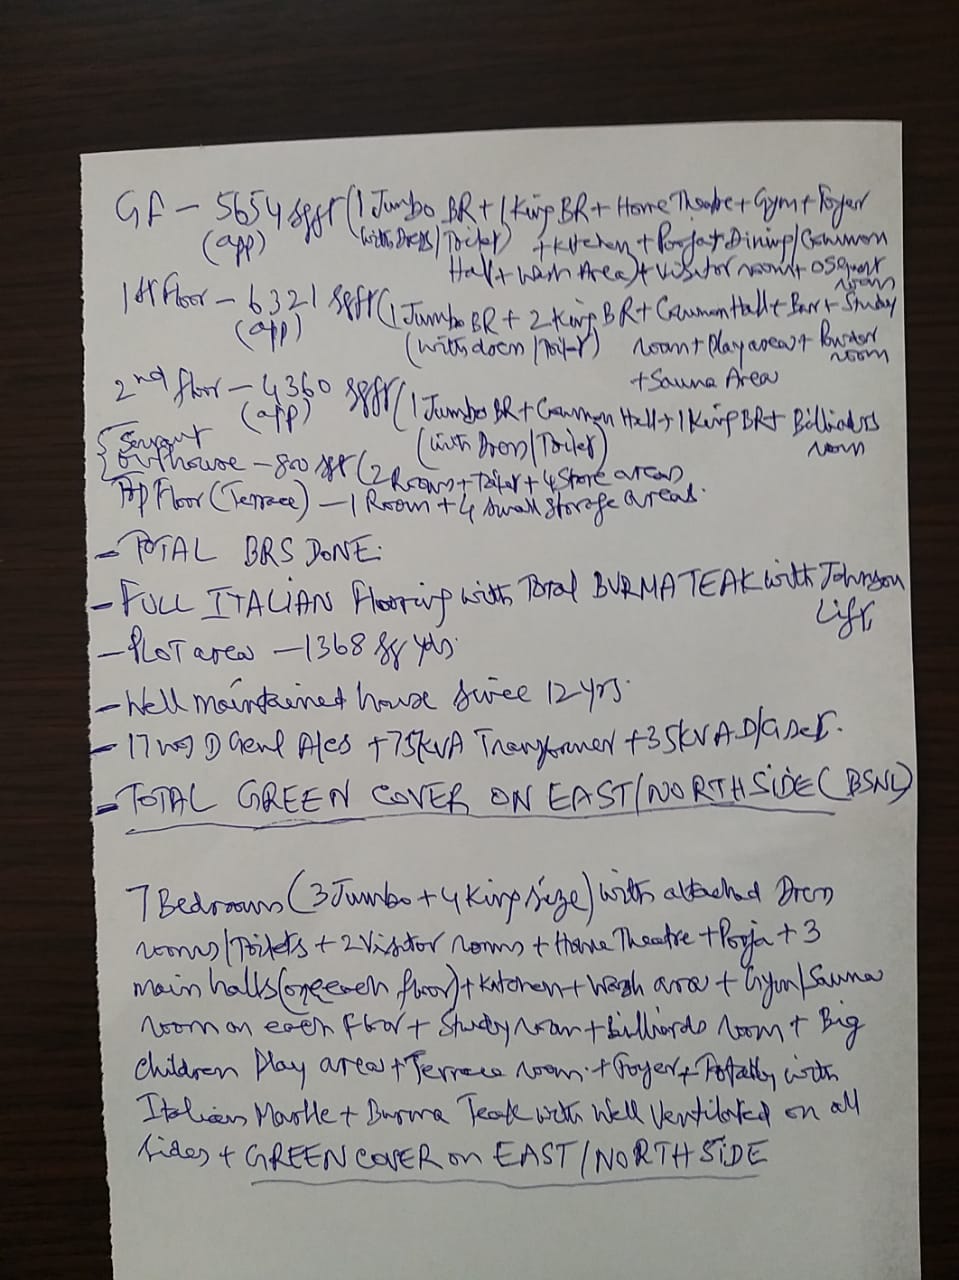 GF - 5654 sqft (1 Jumbo BR + 1 King BR + Home Theatre + Gym + Foyer
(app) (with Dress/Toilet) + Kitchen + Pooja + Dining/Common
Hall + Wash Area) + Visitor room +
room
1st Floor - 6321 sqft (1 Jumbo BR + 2 King BR + Common Hall + Bar + Study
(app) (with dress/Toilet) room + Play area + Powder
room
+ Sauna Area
2nd floor - 4360 sqft (1 Jumbo BR + Common Hall + 1 King BR + Billiards
(app) (with Dress/Toilet) room
{ Servant
Outhouse - 800 sft (2 Rooms + Toilet + 4 Store areas
Top Floor (Terrace) - 1 Room + 4 small storage areas.
- TOTAL BRS DONE.
- FULL ITALIAN Flooring with Total BURMA TEAK with Johnson
Lift,
- PLOT area - 1368 sq yds.
- Well maintained house since 12 yrs.
- 17 nos A/cs + 75KVA Transformer + 35KVA D/G Set.
- TOTAL GREEN COVER ON EAST/NORTH SIDE (BSNL)
7 Bedrooms (3 Jumbo + 4 King size) with attached Dress
rooms/Toilets + 2 Visitor rooms + Home Theatre + Pooja + 3
main halls (one each floor) + Kitchen + Wash area + Gym/Sauna
room on each floor + Study room + Billiards room + Big
children Play area + Terrace room. + Foyer + Totally with
Italian Marble + Burma Teak with Well Ventilated on all
sides + GREEN COVER on EAST/NORTH SIDE